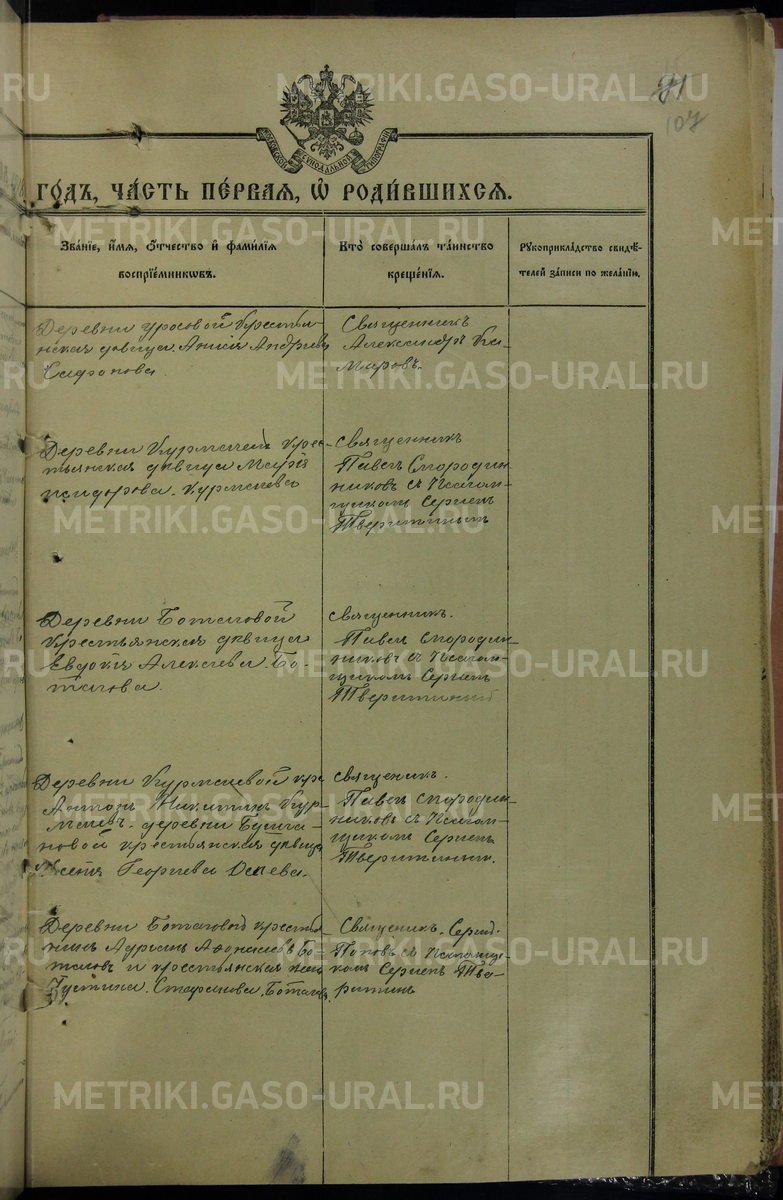 81
107
МОСКОВСКОЙ СѴНОДАЛЬНОЙ ТИПОГРАФІИ
ГОДЪ, ЧАСТЬ ПЕРВАЯ, Ѽ РОДИВШИХСЯ.
Званіе, имя, отчество и фамилія воспріемниковъ.
Кто совершалъ таинство крещенія.
Рукоприкладство свидѣтелей записи по желанію.
Деревни Крестья-
нская дѣвица Анисія Андреева
Сафонова.
Священникъ
Александръ
Деревни Курмачей крес-
тьянская дѣвица Марія
Исидорова Курмачева
священникъ
Павелъ Смородин-
никовъ съ Псалом-
щикомъ Сергіемъ
Тверитинымъ
Деревни Боталовой
Крестьянская дѣвица
Евдокія Алексіева Бо-
талова.
священникъ.
Павелъ Смородин-
никовъ съ Псалом-
щикомъ Сергіемъ
Тверитинымъ
Деревни Курмачевой кре
Никитинъ Кур-
мачевъ. деревни
новой крестьянская дѣвица
Георгіева
священикъ.
Павелъ Смородин-
никовъ съ Псалом-
щикомъ Сергіемъ
Тверитинымъ.
Деревни Боталовой крестья-
нинъ Адріанъ Бо-
таловъ и крестьянская
Устина Боталов
Священикъ
Поповъ съ Псаломще-
комъ Сергіемъ Тве-
ритинъ
METRIKI.GASO-URAL.RU